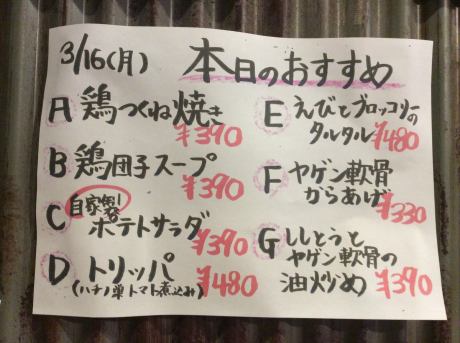 3/16(月) 本日のおすすめ
A 鶏つくね焼き
¥390
B 鶏団子スープ
¥390
C 自家製!
ポテトサラダ
¥390
D トリッパ
(ハチノ巣トマト煮込み) ¥480
E えびとブロッコリーの
タルタル ¥480
F ヤゲン軟骨
からあげ ¥330
G ししとうと
ヤゲン軟骨の
油炒め ¥390